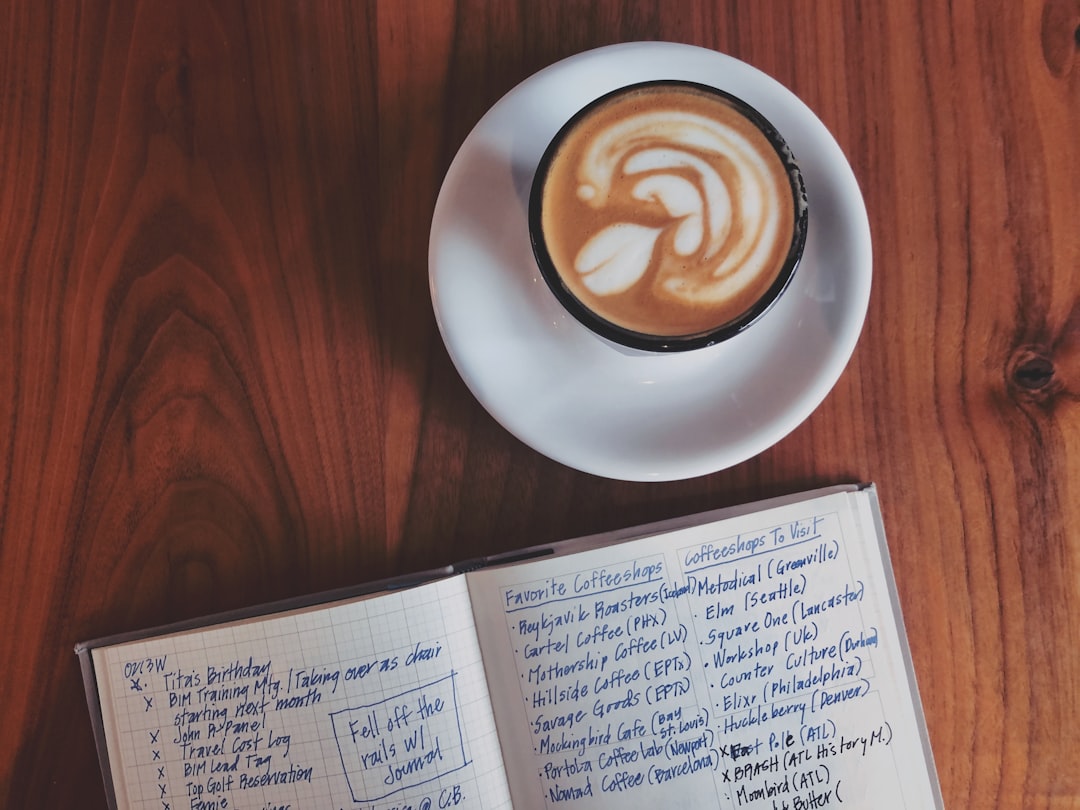 Tita's Birthday
BIM Training Mtg. / Taking over as chair
starting next month
John A. Panel
Travel Cost Log
BIM Lead Tag
Top Golf Reservation
Fell off the
rails w/
Journal
@ C.B.
Favorite Coffeeshops
Reykjavik Roasters (Iceland)
Cartel Coffee (PHX)
Mothership Coffee (LV)
Hillside Coffee (EPTX)
Savage Goods (EPTX)
Mockingbird Cafe (Bay
St. Louis)
Portola Coffee Lab (Newport)
Nomad Coffee (Barcelona)
Coffeeshops To Visit
Metodical (Greenville)
Elm (Seattle)
Square One (Lancaster)
Workshop (UK)
Counter Culture (Durham)
Elixr (Philadelphia)
Huckleberry (Denver)
x East Pole (ATL)
x BRASH (ATL History M.)
Moonbird (ATL)
Butter (